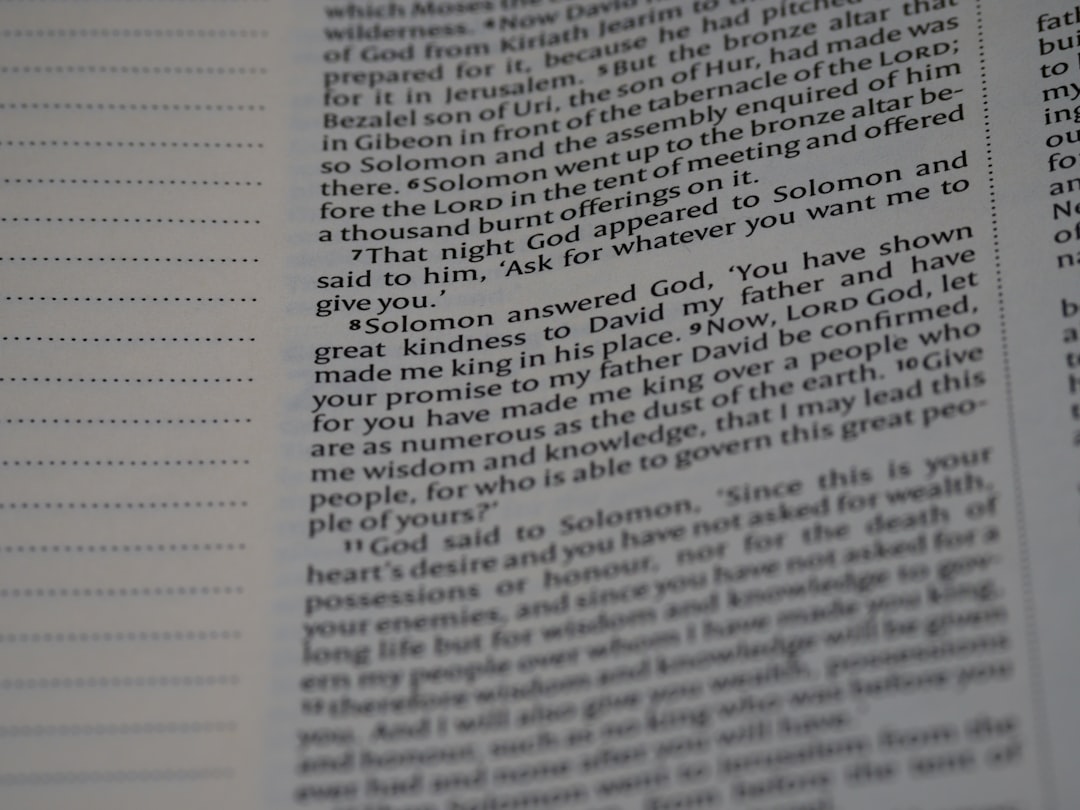 which Moses the
wilderness. 4Now David
of God from Kiriath Jearim to
prepared for it, because he had pitched
for it in Jerusalem. 5But the bronze altar that
Bezalel son of Uri, the son of Hur, had made was
in Gibeon in front of the tabernacle of the LORD;
so Solomon and the assembly enquired of him
there. 6Solomon went up to the bronze altar be-
fore the LORD in the tent of meeting and offered
a thousand burnt offerings on it.
7That night God appeared to Solomon and
said to him, ‘Ask for whatever you want me to
give you.’
8Solomon answered God, ‘You have shown
great kindness to David my father and have
made me king in his place. 9Now, LORD God, let
your promise to my father David be confirmed,
for you have made me king over a people who
are as numerous as the dust of the earth. 10Give
me wisdom and knowledge, that I may lead this
people, for who is able to govern this great peo-
ple of yours?’
11God said to Solomon, ‘Since this is your
heart’s desire and you have not asked for wealth,
possessions or honour, nor for the death of
your enemies, and since you have not asked for a
long life but for wisdom and knowledge to gov-
ern my people over whom I have made you king,
12therefore wisdom and knowledge will be given
you. And I will also give you wealth, possessions
and honour, such as no king who was before you
ever had and none after you will have.’
Solomon went to Jerusalem from the
from before the tent of
to
my